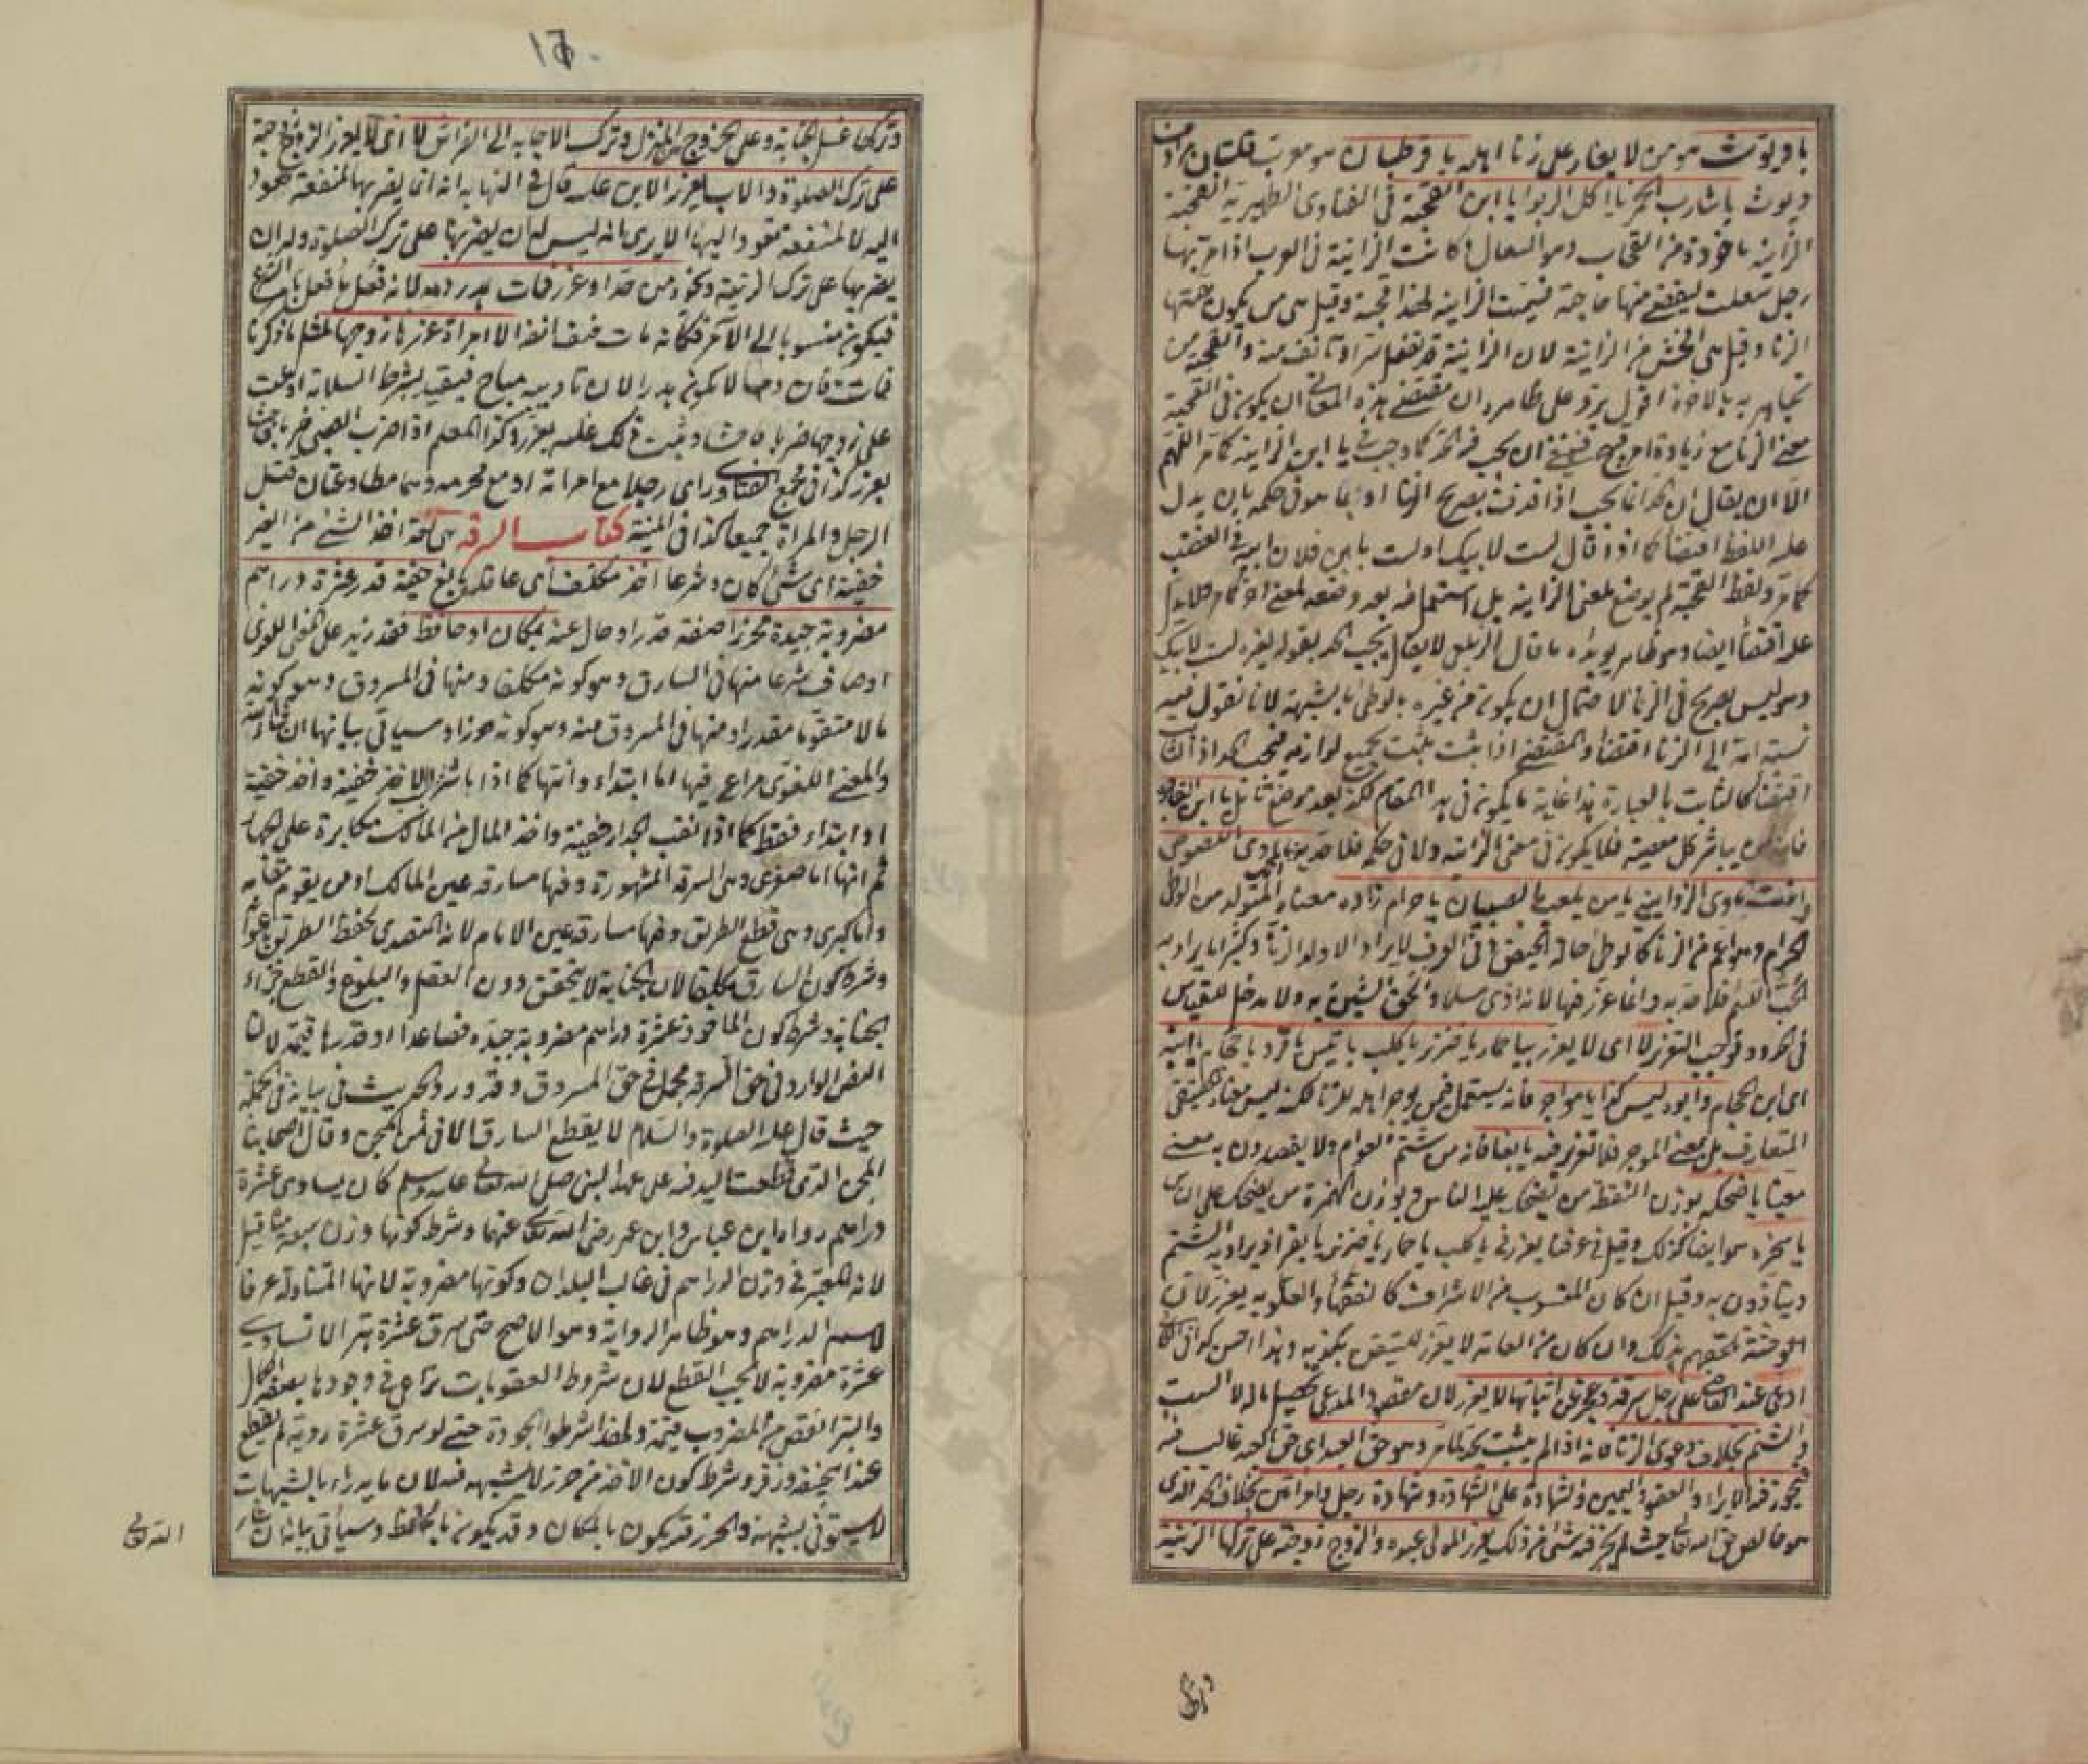 يا ديوث هو من لا يغار على زنا اهله يا قرطبان هو معرب قلتبان مرادف
ديوث يا شارب الخمر يا آكل الربوا يا ابن القحبة في الفتاوى الظهيرية القحبة
الزانية ماخوذة من القحاب وهو السعال وكانت الزانية في العرب اذا مر بها
رجل سعلت ليقضي منها حاجته فسميت الزانية لهذا قحبة وقيل هي من يكون همتها
الزنا وقيل هي افحش من الزانية لان الزانية قد تفعل سرا وتأنف منه والقحبة من
تجاهر به بالاجرة اقول يرد على ظاهره ان مقتضى هذه المعاني ان يكون في القحبة
معنى الزنا مع زيادة امر قبيح فينبغي ان يجب فيه الحد كما وجب في يا ابن الزانية كما مر اللهم
الا ان يقال ان الحد انما يجب اذا قذف بصريح الزنا او بما هو في حكمه بان يدل
عليه اللفظ اقتضاء كما اذا قال لست لابيك او لست بابن فلان ابيه في الغضب
كما مر ولفظ القحبة لم يوضع لمعنى الزانية بل استعمل فيه بعد وضعه لمعنى آخر كما مر فلا يدل
عليه اقتضاء ايضا وهو ظاهر يؤيده ما قال الزيلعي لا يقال يجب الحد بقوله لغيره لست لابيك
وهو ليس بصريح في الزنا لاحتمال ان يكون من غيره بالوطئ بالشبهة لانا نقول فيه
نسبته امه الى الزنا اقتضاء والمقتضى اذا ثبت يثبت بجميع لوازمه فيجب الحد اذ الثابت
اقتضاء كالثابت بالعبارة هذا غاية ما يكون في هذا المقام لكنه بعد موضع تأمل يا ابن الفاجرة
فانه من يباشر كل معصية فلا يكون في معنى الزانية ولا في حكمه فلا حد به يا مأوى اللصوص
انت مأوى الزواني يا من يلعب بالصبيان يا حرام زاده معناه المتولد من الوطئ
الحرام وهو اعم من الزنا كالوطئ حالة الحيض وفي العرف لا يراد الا ولد الزنا وكثيرا ما يراد به
الخب اللئيم فلا حد به وانما عزر فيها لانه اذى مسلما والحق الشين به ولا مدخل للقياس
في الحدود فوجب التعزير لا اي لا يعزر بيا حمار يا خنزير يا كلب يا تيس يا قرد يا حجام يا ابنه
اي ابن الحجام وابوه ليس كذا يا مؤاجر فانه يستعمل فيمن يوجر اهله للزنا لكنه ليس معناه الحقيقي
المتعارف بل بمعنى الموجر فلا تعزير فيه يا بغا فانه من شتم العوام ولا يقصدون به معنى
معينا يا ضحكه بوزن النقطة من يضحك عليه الناس وبوزن الهمزة من يضحك على الناس
يا سخره هو ايضا كذلك وقيل في عرفنا يعزر في يا كلب يا حمار يا خنزير يا بقر اذ يراد به الشتم
ويتأذون به وقيل ان كان المنسوب من الاشراف كالفقهاء والعلويه يعزر لان
الوحشة تلحقهم بذلك وان كان من العامة لا يعزر للتيقن بكذبه وهذا احسن كذا في الكافي
ادعى عند القاضي على رجل سرقة وعجز عن اثباتها لا يعزر لان مقصود المدعي تحصيل ماله لا السب
والشتم بخلاف دعوى الزنا فانه اذا لم يثبت يحد لما مر وهو حق العبد اي حق العبد غالب فيه
فيجوز فيه الابراء والعفو واليمين والشهادة على الشهادة وشهادة رجل وامرأتين بخلاف الحد الذي
هو خالص حق الله تعالى حيث لم يجز فيه شئ من ذلك يعزر المولى عبده والزوج زوجته على تركها الزينة
وتركها
١٦٠
وتركها غسل الجنابة وعلى الخروج من المنزل وترك الاجابة الى الفراش لا اي لا يعزر الزوج زوجته
على ترك الصلوة والاب يعزر الابن عليه قال في النهاية انه اي يضربها لمنفعة تعود
اليه لا لمنفعة تعود اليها الا يرى انه ليس له ان يضربها على ترك الصلوة وله ان
يضربها على ترك الزينة ونحوه من حد او عزر فمات هدر دمه لانه فعل ما فعل بامر الشرع
فيكون منسوبا الى الآمر فكانه مات حتف انفه الا امرأة عزرها زوجها لمثل ما ذكرنا
فماتت فان دمها لا يكون هدرا لان تاديبه مباح فيتقيد بشرط السلامة ادعت
على زوجها ضربا فاحشا وثبت ذلك عليه يعزر وكذا المعلم اذا ضرب الصبي ضربا فاحشا
يعزر كذا في مجمع الفتاوى رأى رجلا مع امرأته او مع محرمه وهما مطاوعتان قتل
الرجل والمرأة جميعا كذا في المنية كتاب السرقه هي لغة اخذ الشئ من الغير
خفية اي شئ كان وشرعا اخذ مكلف اي عاقل بالغ خفية قدر عشرة دراهم
مضروبة جيدة محرزا صفة قدرا وحال عنه بمكان او حافظ فقد زيد على المعنى اللغوي
اوصاف شرعا منها في السارق وهو كونه مكلفا ومنها في المسروق وهو كونه
مالا متقوما مقدرا ومنها في المسروق منه وهو كونه حرزا وسيأتي بيانها ان شاء الله
والمعنى اللغوي مراعى فيها اما ابتداء وانتهاء كما اذا باشر الاخذ خفية واخذ خفية
او ابتداء فقط كما اذا نقب الجدار خفية واخذ المال من المالك مكابرة على الجهار
ثم انها اما صغرى وهي السرقة المشهورة وفيها مسارقة عين المالك او من يقوم مقامه
واما كبرى وهي قطع الطريق وفيها مسارقة عين الامام لانه المتصدي لحفظ الطريق باعوانه
وشرط كون السارق مكلفا لان الجناية لا يتحقق دون العقل والبلوغ والقطع جزاء
الجناية وشرط كون الماخوذ عشرة دراهم مضروبة جيدة فصاعدا او قدرها قيمة لان
النص الوارد في حق السرقة مجمل في حق المسروق وقد ورد الحديث في بيانه في الجملة
حيث قال عليه الصلوة والسلام لا يقطع السارق الا في ثمن المجن وقال اصحابنا
المجن الذي قطعت اليد فيه على عهد النبي صلى الله تعالى عليه وسلم كان يساوي عشرة
دراهم رواه ابن عباس وابن عمر رضي الله تعالى عنهما وشرط كونها وزن سبعة مثاقيل
لانه المعتبر في وزن الدراهم في غالب البلدان وكونها مضروبة لانها المتناولة عرفا
لاسم الدراهم وهو ظاهر الرواية وهو الاصح حتى سرق عشرة تبرا لا تساوي
عشرة مضروبة لا يجب القطع لان شروط العقوبات تراعى في وجودها بصفة الكمال
والتبر انقص من المضروب قيمة ولهذا شرطوا الجودة حتى لو سرق عشرة ردية لم يقطع
عند ابي حنيفة وزفر وشرط كون الاخذ من حرز لا شبهه فيه لان ما يدرأ بالشبهات
لا يستوفى بشبهة والحرز قد يكون بالمكان وقد يكون بالحافظ وسيأتي بيانه ان شاء
الله تعالى